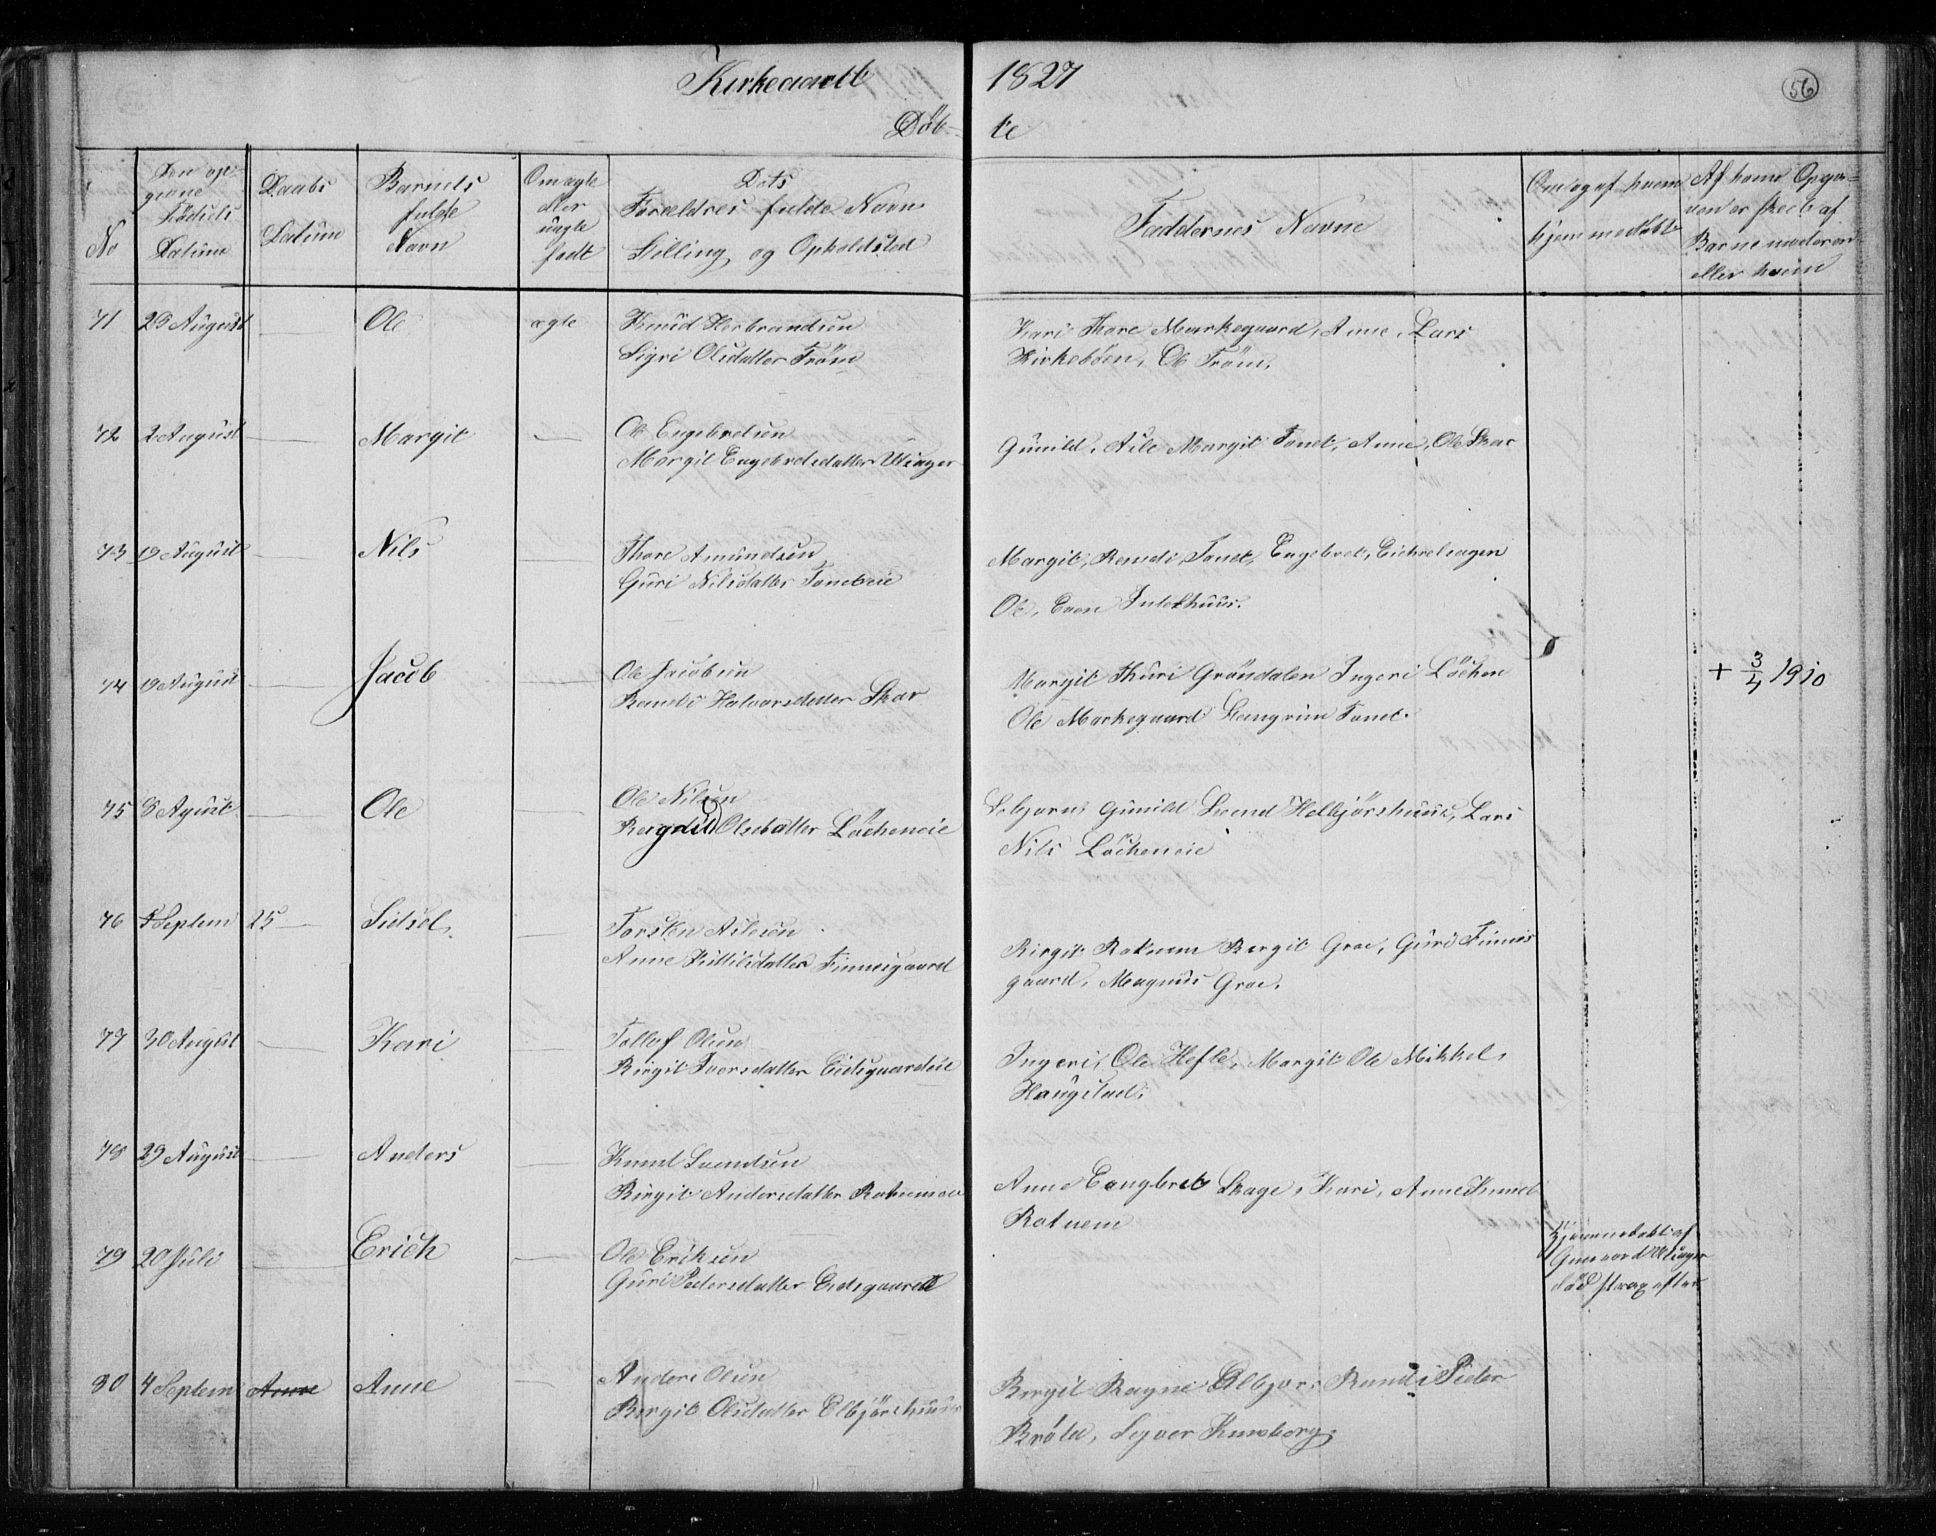 Kirkeaaret 1827
56
Döb-te
No
Den op-
givne
Födsels
Datum
Daabs
Datum
Barnets
fulde
Navn
Om ægte
eller
uægte
født
Dets
Forældres fulde Navn
Stilling og Opholdsted
Faddernes Navne
Om og af hvem
hjemmedøbt
Af hvem Opga-
ven er skeet af
Barnemoderen
eller hvem
71 23 August Ole ægte Knud Herbrandsen
Sigri Olsdatter Tröm
Kari Thore Markegaard, Anne, Lars
Kirkebøen, Ole Tröm.
72 2 August Margit Ole Engebretsen
Margit Engebretsdatter
Gunild, Asle Margit Tonet, Anne, Ole Skar
73 19 August Nils Thore Amundsen
Guri Nilsdatter Toneteie
Margit, Randi Tonet, Engebret
Ole, Even
74 19 August Jacob Ole Jacobsen
Randi Halvorsdatter Skar
Margit Thuri Gröndalen Ingeri Löchen
Ole Markegaard Langrim Tonet.
+ 3/4 1910
75 8 Agust Ole Ole Nilsen
Olsdatter Löcheneie
Gunild Svend Lars
Nils Löcheneie
76 5 Septem 25 Sidsel Torsten Aslesen
Anne Kittilsdatter Finnesgaard
Birgit Rotnem Bergit Groe, Guri Finnes
gaard, Magnus Groe.
77 30 August Kari Tollef Olsen
Birgit Iversdatter Eidsgaardeie
Ingeri, Ole Hefte, Margit Ole Mikkel,
Haugstad.
78 29 August Anders Knud Svendsen
Birgit Andersdatter
Anne Eengbret Skage, Kari, Anne Knud
Rotnem
79 20 Juli Erich Ole Eriksen
Guri Pedersdatter Eidsgaard
Hjemmedøbt af
død strax efter
80 4 Septem Anne Anne Anders Olsen
Bergit Olsdatter
Bergit Ragne Randi Peder
Bröta,